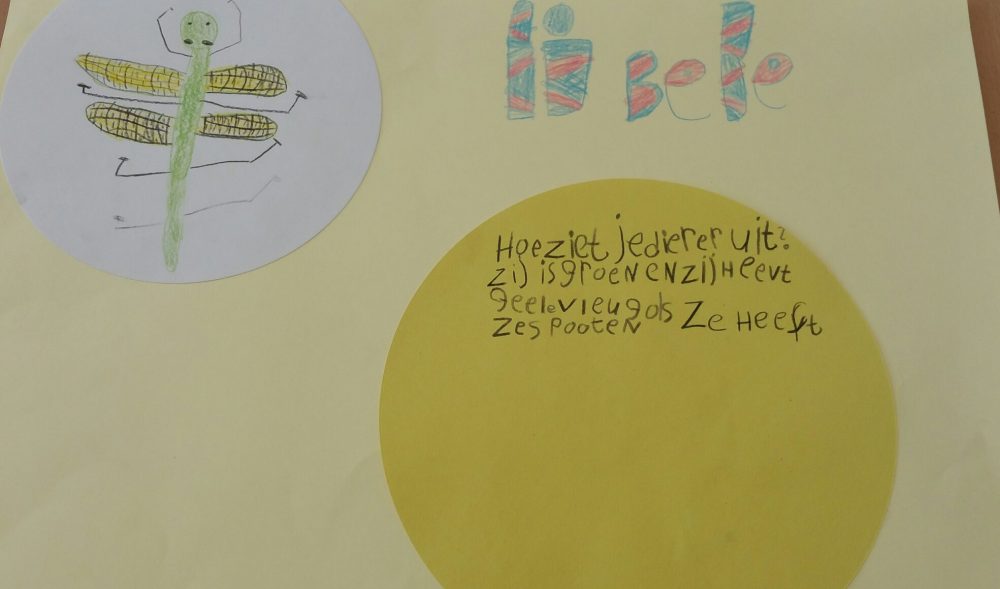 li Bele
Hoe ziet je dier er uit?
zij is groeN eN zij Heevt
geele vleugols Ze Heeft
zes PooteN